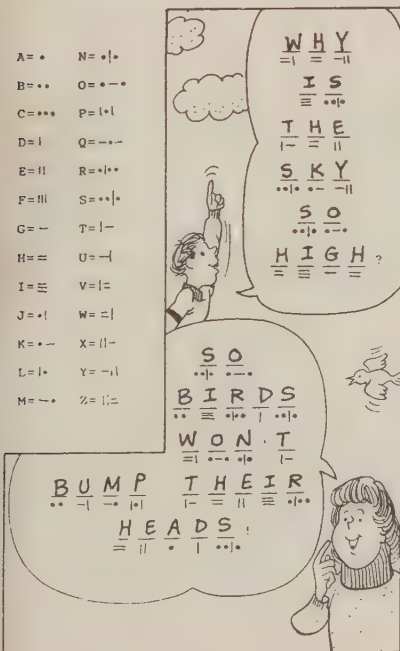 A= •
B= ••
C= •••
D= |
E= ||
F= |||
G= –
H= =
I= ≡
J= •|
K= •–
L= |•
M= –•
N= •|•
O= •–•
P= |•|
Q= –•–
R= •|••
S= ••|•
T= |–
U= –|
V= |=
W= =|
X= ||–
Y= –||
Z= ||=
WHY
IS
THE
SKY
SO
HIGH?
SO
BIRDS
WON'T
BUMP THEIR
HEADS!